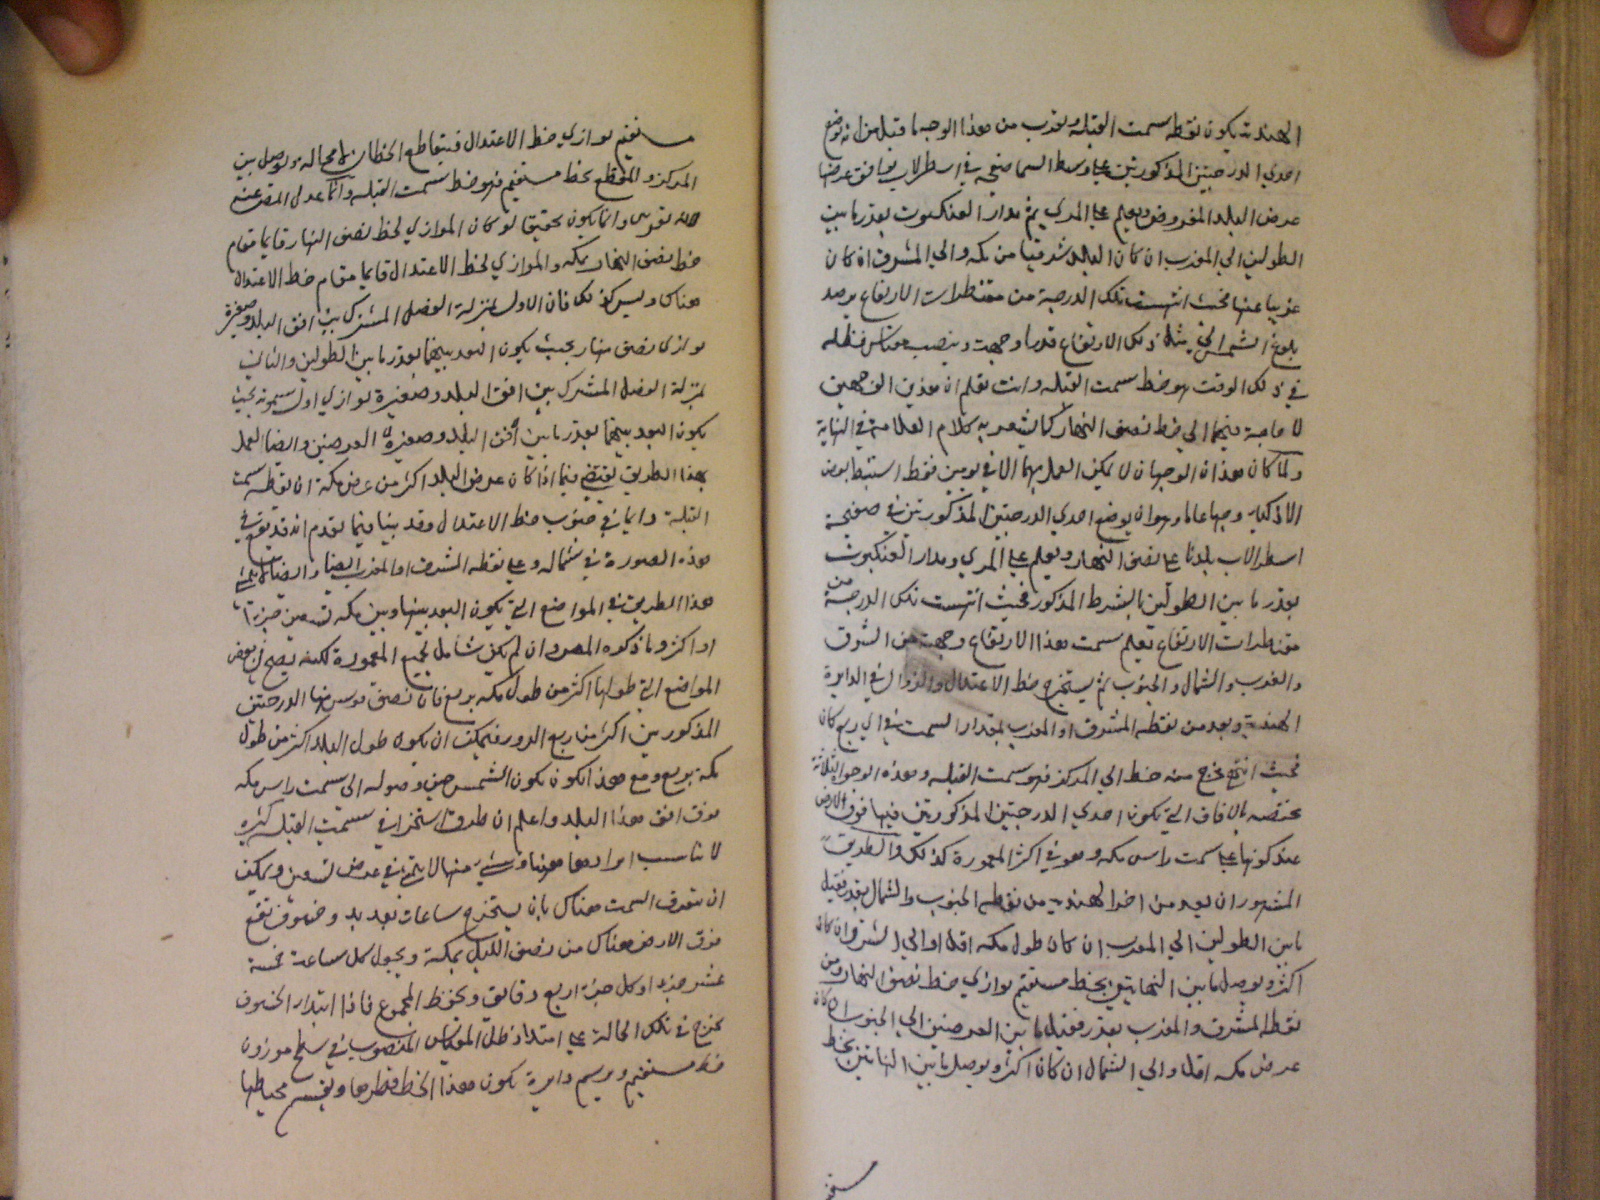 الهندية يكون نقطه سمت القبله ويقرب من هذا الوجه ما قيل من انه توضع
احدي الدرجتين المذكورتين علي وسط السما في صفيحه في اسطرلاب يوافق عرضها
عرض البلد المفروض ويعلم علي المري ثم يدار العنكبوت بقدر ما بين
الطولين الي المغرب ان كان البلد شرقيا من مكه والي المشرق ان كان
غربيا عنها فحيث انتهت تلك الدرجة من مقنطرات الارتفاع يرصد
بلوغ الشمس الي مثل ذلك الارتفاع قدرا وجهت وينصب مقياس فظله
في ذلك الوقت هو خط سمت القبله وانت تعلم ان هذين الوجهين
لا حاجة فيهما الي خط نصف النهار كما يشعر به كلام العلامة في النهاية
ولما كان هذان الوجهان لا يمكن العمل بهما الا في يومين فقط استنبط بعض
الاذكيا وجها عاما وهو ان يوضع احدي الدرجتين المذكورتين في صفيحة
اسطرلاب بلدنا علي نصف النهار ويعلم علي المري ويدار العنكبوت
بقدر ما بين الطولين بالشرط المذكور فحيث انتهت تلك الدرجة من
مقنطرات الارتفاع تعلم سمت هذا الارتفاع وجهته من الشرق
والغرب والشمال والجنوب ثم يستخرج خط الاعتدال والزوال في الدايرة
الهندية ويعد من نقطه المشرق او المغرب بمقدار السمت في اي ربع كان
فحيث انتهي يخرج منه خط الي المركز فهو سمت القبله وهذه الوجوه الثلاثة
مختصه بالافاق التي تكون احدي الدرجتين المذكورتين فيها فوق الارض
عند كونها علي سمت راس مكه وهو في اكثر المعمورة كذلك والطريق
المشهور ان يعد من اخر الهندية من نقطه الجنوب والشمال بقدر فضل
ما بين الطولين الي المغرب ان كان طول مكه اقل او الي الشرق ان كان
اكثر ويوصل ما بين النهايتين بخط مستقيم يوازي خط نصف النهار ومن
نقطه المشرق والمغرب بقدر فضل ما بين العرضين الي الجنوب ان كان
عرض مكه اقل والي الشمال ان كان اكثر ويوصل ما بين النهايتين بخط
مستقيم
مستقيم يوازي خط الاعتدال فيتقاطع الخطان لا محاله ويوصل بين
المركز والتقاطع بخط مستقيم فهو خط سمت القبله وانما عدل المص عنه
لانه تقريبي وانما يكون تحقيقا لو كان الموازي لخط نصف النهار قايما مقام
خط نصف النهار بمكه والموازي لخط الاعتدال قايما مقام خط الاعتدال
هناك وليس كذلك فان الاول بمنزلة الفصل المشترك بين افق البلد وصغيرة
يوازي نصف نهاره بحيث يكون البعد بينهما بقدر ما بين الطولين والثاني
بمنزلة الفصل المشترك بين افق البلد وصغيرة يوازي اول سموته بحيث
يكون البعد بينهما بقدر ما بين العرضين وايضا العمل
بهذا الطريق يقتضي فيما اذا كان عرض البلد اكثر من عرض مكة ان نقطه سمت
القبلة دايما في جنوب خط الاعتدال وقد بينا فيما تقدم انه قد يقع في
هذه الصورة في شماله وعلي نقطه المشرق او المغرب ايضا وايضا لا يتمشي
هذا الطريق في المواضع التي يكون البعد بينها وبين مكه تسعين جزءا
او اكثر وما ذكره المص وان لم يكن شاملا لجميع المعمورة لكنه يصح في بعض
المواضع التي طولها اكثر من طول مكه بربع فان نصف قوس نهار الدرجتين
المذكورتين اكثر من ربع الدور فيمكن ان يكون طول البلد اكثر من طول
مكه بربع ومع هذا يكون الشمس حين وصوله الي سمت راس مكه
فوق افق هذا البلد واعلم ان طرق استخراج سمت القبله كثيره
لا يناسب ايرادها هنا وشي منها لا يتمشي في عرض تسعين ويمكن
ان يتعرف السمت هناك بان يستخرج ساعات بعد بدو خسوف يقع
فوق الارض هناك من نصف الليل بمكة ويحول كل ساعة خمسة
عشر جزءا وكل جزء اربع دقايق ويحفظ المجموع فاذا ابتدا الخسوف
يخرج في تلك الحالة علي امتداد ظل المقياس المنصوب في سطح موزون
خط مستقيم ويرسم دايرة يكون هذا الخط قطرها ويقسم محيطها